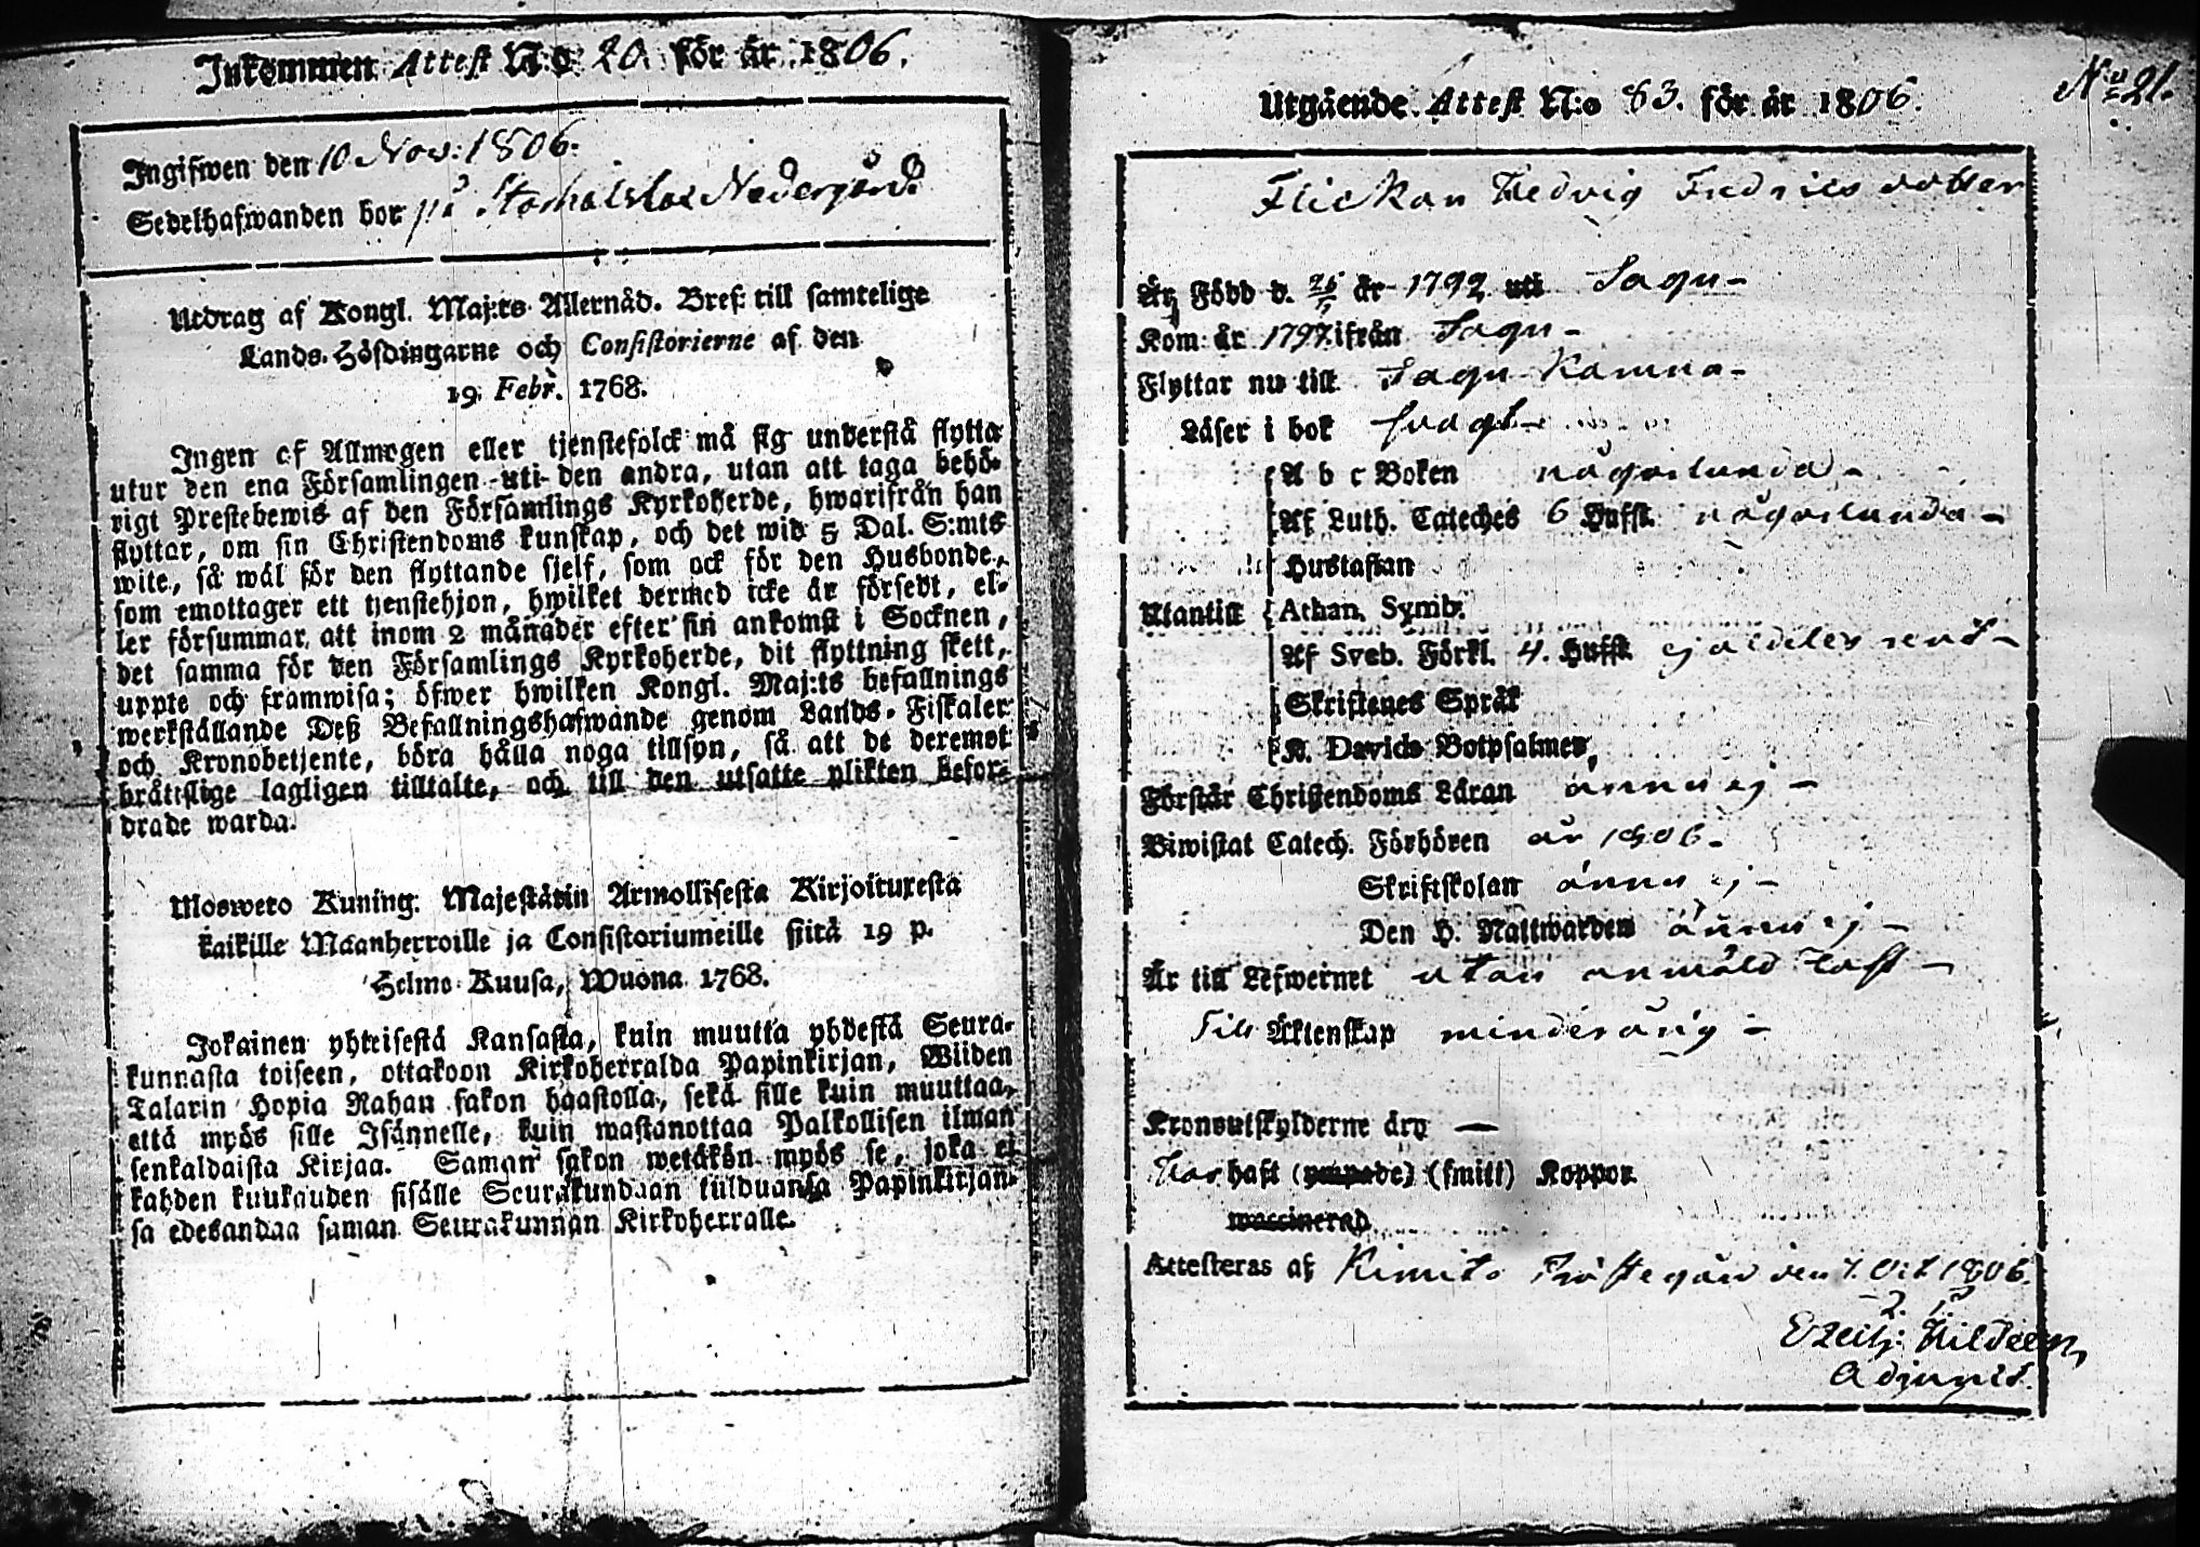 Inkommen Attest N:o 20. för år 1806.
Ingifwen den 10 Nov: 1806.
Sedelhafwanden bor på Nedergård
Utdrag af Kongl. Maj:ts Allernåd. Bref till samtelige
Lands-Höfdingarne och Consistorierne af den
19. Febr. 1768.
Ingen af Allmogen eller tjenstefolck må sig understå flytta
utur den ena Församlingen uti den andra, utan att taga behö-
rigt Prestebewis af den Församlings Kyrkoherde, hwarifrån han
flyttar, om sin Christendoms kunskap, och det wid 5 Dal. S:mts
wite, så wäl för den flyttande sjelf, som ock för den Husbonde,
som emottager ett tjenstehjon, hwilket dermed icke är försedt, el-
ler försummar, att inom 2 månader efter sin ankomst i Socknen,
det samma för den Församlings Kyrkoherde, dit flyttning skett,
uppte och framwisa; öfwer hwilken Kongl. Maj:ts befallnings
werkställande Deß Befallningshafwande genom Lands-Fiskaler
och Kronobetjente, böra hålla noga tillsyn, så att de deremot
bråttslige lagligen tilltalte, och till den utsatte plikten befor-
drade warda.
Uloswero Kuning. Majestätin Armollisesta Kirjoituxesta
kaikille Maanherroille ja Consistoriumeille siitä 19 p.
Helmo Kuusa, Wuona 1768.
Jokainen yhteisestä Kansasta, kuin muutta yhdestä Seura-
kunnasta toiseen, ottakoon Kirkoherralda Papinkirjan, Wiiden
Talarin Hopia Rahan sakon haastolla, sekä sille kuin muuttaa,
että myös sille Isännelle, kuin wastanottaa Palkollisen ilman
senkaldaista Kirjaa. Saman sakon wetäkön myös se, joka ei
kahden kuukauden sisälle Seurakundaan tulduansa Papinkirjan-
sa edesandaa saman Seurakunnan Kirkoherralle.
N:o 21.
Utgående Attest N:o 83. för år 1806.
Flickan Hedvig Fredricsdotter
Är Född d. år 1792 uti Sagu-
Kom år 1797 ifrån Sagu-
Flyttar nu till Sagu Karuna-
Läser i bok svagt-
A b c Boken någorlunda-
Af Luth. Cateches 6 Hufst. någorlunda-
Hustaflan
Utantill Athan. Symb.
Af Sveb. Förkl. 4. Hufst. ej aldeles rent-
Skriftenes Språk
K. Davids Botpsalmer,
Förstår Christendoms Läran ännu ej-
Biwistat Catech. Förhören år 1806-
Skriftskolan ännu ej-
Den H. Nattwarden ännu ej-
Är till Lefwernet utan anmäld last-
Till Äktenskap minderårig-
Kronoutskylderne äro —
Har haft (ympade) (smitt) Koppor
waccinerad
Attesteras af Kimito Prästegård den 7. Oct 1806.
Adjunct.